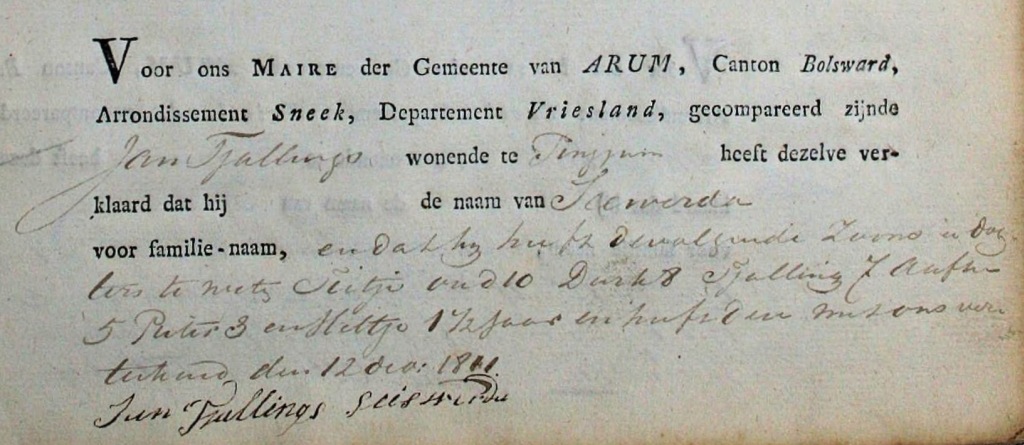 Voor ons MAIRE der Gemeente van ARUM, Canton Bolsward,
Arrondissement Sneek, Departement Vriesland, gecompareerd zijnde
Jan Tjallings wonende te heeft dezelve ver-
klaard dat hij de naam van
voor familie-naam, en dat hy heeft de volgende Zoons &
ters te wete oud 10 8 Tjalling 7
5 Pieter 3 en 1½ Jaar en heeft deze met ons
tekend den 12 dec: 1811
Jan Tjallings